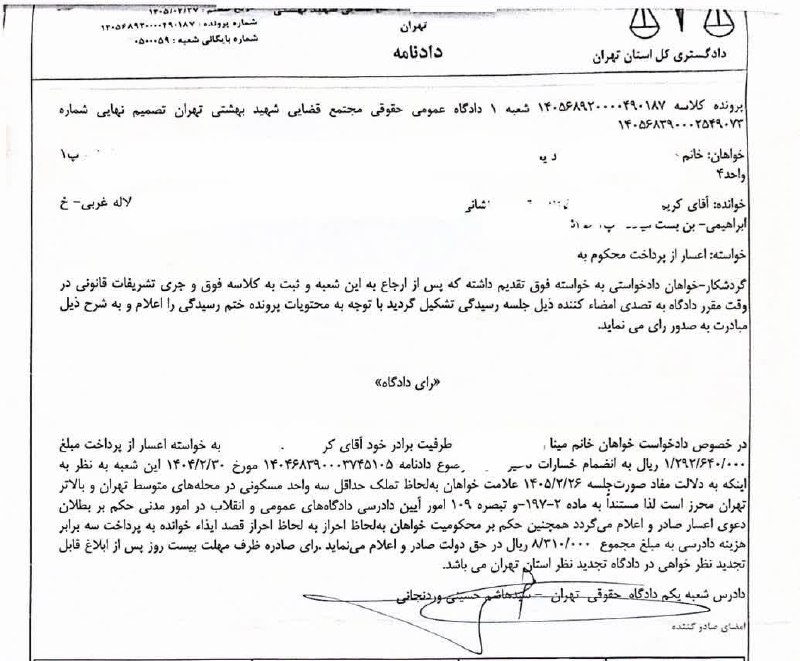 ۱۴۰۵/۰۲/۲۷
شماره پرونده : ۱۴۰۵۶۸۹۲۰۰۰۰۴۹۰۱۸۷
شماره بایگانی شعبه : ۰۵۰۰۰۵۹
تهران
دادنامه
دادگستری کل استان تهران
پرونده کلاسه ۱۴۰۵۶۸۹۲۰۰۰۰۴۹۰۱۸۷ شعبه ۱ دادگاه عمومی حقوقی مجتمع قضایی شهید بهشتی تهران تصمیم نهایی شماره
۱۴۰۵۶۸۳۹۰۰۰۲۵۴۹۰۷۳
خواهان: خانم
واحد۴
خوانده: آقای کریم لاله غربی- خ
ابراهیمی- بن بست
خواسته: اعسار از پرداخت محکوم به
گردشکار-خواهان دادخواستی به خواسته فوق تقدیم داشته که پس از ارجاع به این شعبه و ثبت به کلاسه فوق و جری تشریفات قانونی در
وقت مقرر دادگاه به تصدی امضاء کننده ذیل جلسه رسیدگی تشکیل گردید با توجه به محتویات پرونده ختم رسیدگی را اعلام و به شرح ذیل
مبادرت به صدور رای می نماید.
«رای دادگاه»
در خصوص دادخواست خواهان خانم مینا طرفیت برادر خود آقای کر به خواسته اعسار از پرداخت مبلغ
۱/۲۹۲/۶۴۰/۰۰۰ ریال به انضمام خسارات دادنامه ۱۴۰۴۶۸۳۹۰۰۰۳۷۴۵۱۰۵ مورخ ۱۴۰۴/۲/۳۰ این شعبه به نظر به
اینکه به دلالت مفاد صورت‌جلسه ۱۴۰۵/۲/۲۶ علامت خواهان به‌لحاظ تملک حداقل سه واحد مسکونی در محله‌های متوسط تهران و بالاتر
تهران محرز است لذا مستنداً به ماده ۲-۱۹۷-و تبصره ۱۰۹ امور آیین دادرسی دادگاه‌های عمومی و انقلاب در امور مدنی حکم بر بطلان
دعوی اعسار صادر و اعلام می‌گردد همچنین حکم بر محکومیت خواهان به‌لحاظ احراز به لحاظ احراز قصد ایذاء خوانده به پرداخت سه برابر
هزینه دادرسی به مبلغ مجموع ۸/۳۱۰/۰۰۰ ریال در حق دولت صادر و اعلام می‌نماید .رای صادره ظرف مهلت بیست روز پس از ابلاغ قابل
تجدید نظر خواهی در دادگاه تجدید نظر استان تهران می باشد.
دادرس شعبه یکم دادگاه حقوقی تهران - سیدهاشم حسینی وردنجانی
امضای صادر کننده